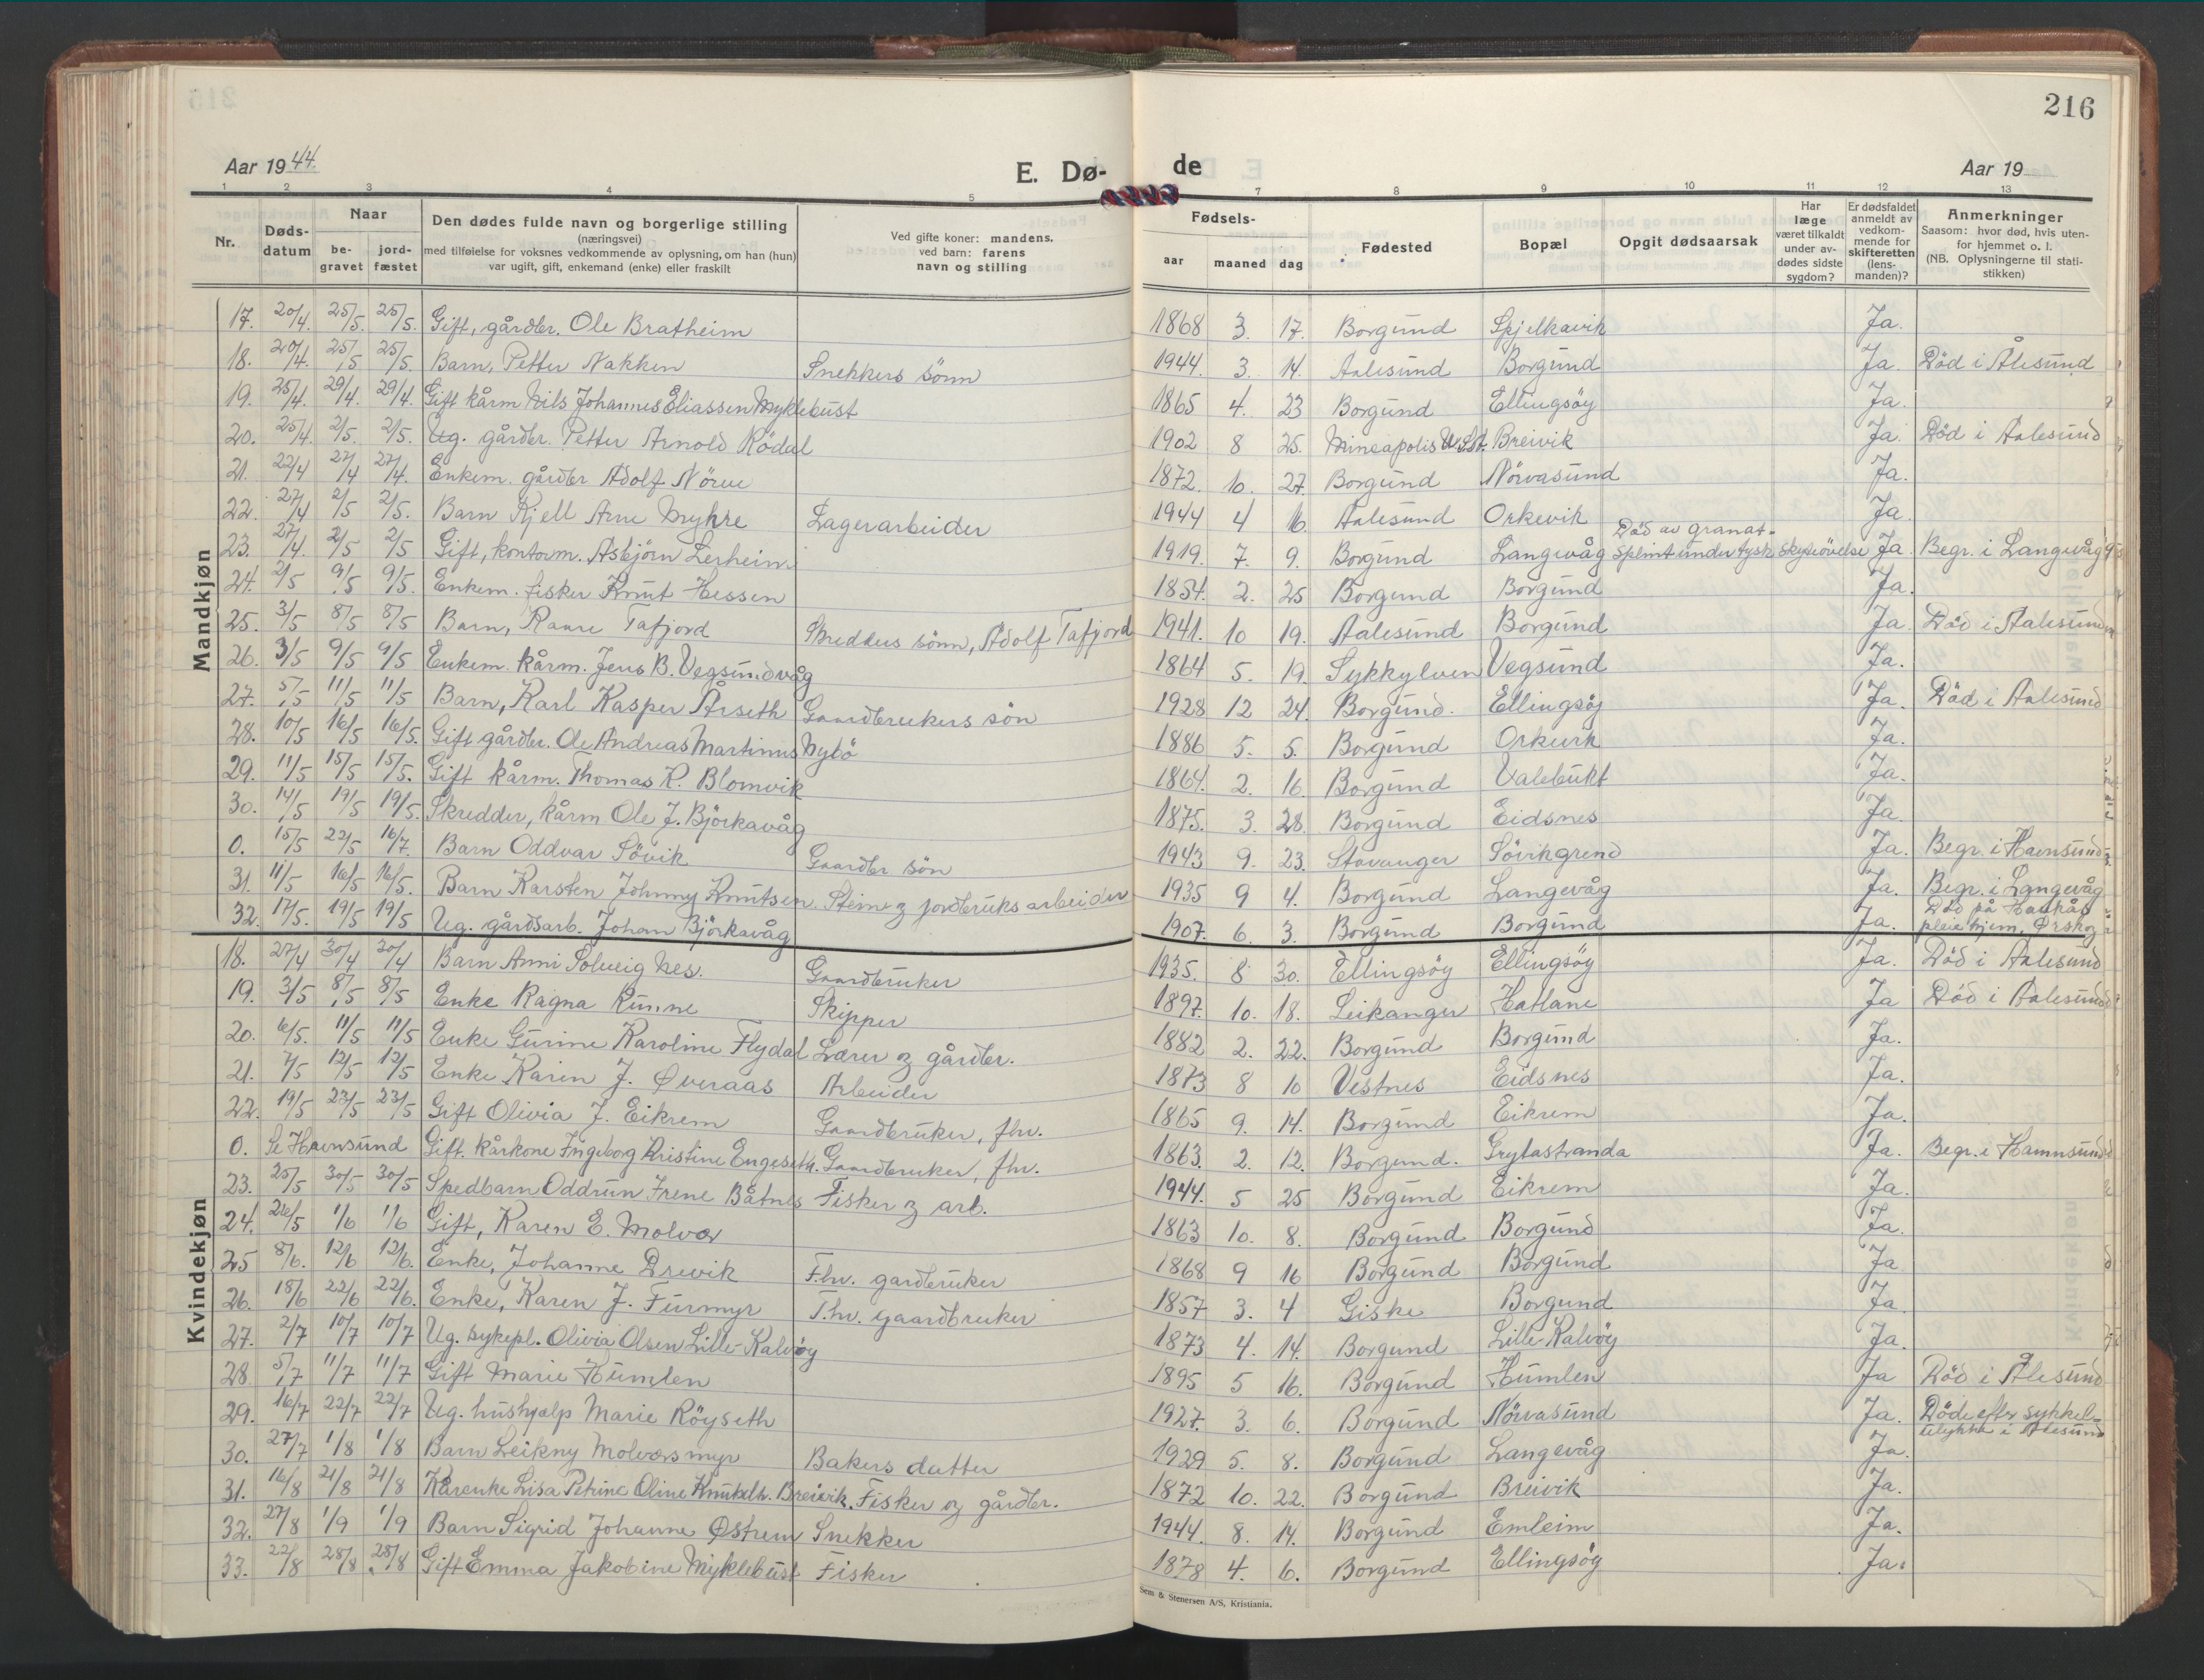 216
Aar 1944
E. Dø- de
Aar 19
1 2 3 4 5 7 8 9 10 11 12 13
Nr.
Døds-datum
Naar
be-gravet
jord-fæstet
Den dødes fulde navn og borgerlige stilling
(næringsvei)
med tilføielse for voksnes vedkommende av oplysning, om han (hun)
var ugift, gift, enkemand (enke) eller fraskilt
Ved gifte koner: mandens.
ved barn: farens
navn og stilling
Fødsels-
aar maaned dag
Fødested
Bopæl
Opgit dødsaarsak
Har læge været tilkaldt under av-dødes sidste sygdom?
Er dødsfaldet anmeldt av vedkom-mende for skifteretten (lens-manden)?
Anmerkninger
Saasom: hvor død, hvis uten-
for hjemmet o. l.
(NB. Oplysningerne til stati-
stikken)
Mandkjøn
17. 20/4. 25/5. 25/5. Gift, gårdbr. Ole Bratheim 1868 3. 17. Borgund Spjelkavik Ja.
18. 20/4. 25/5 25/5. Barn, Petter Nakken Snekkers sönn 1944. 3. 14. Aalesund Borgund Ja. Död i Ålesund
19. 25/4. 29/4. 29/4. Gift kårm Nils Johannes Eliassen Myklebust 1865 4. 23 Borgund Ellingsöy Ja.
20. 25/4. 2/5. 2/5. Ug. gårdbr. Petter Arnold Rödal 1902 8 25. Mineapolis U.St. Breivik Ja. Död i Aalesund
21. 22/4 27/4 27/4. Enkem. gårdbr Adolf Nörve 1872. 10. 27. Borgund Nörvasund Ja.
22. 27/4 2/5 2/5. Barn Kjell Arne Myhre Lagerarbeider 1944 4 16. Aalesund Orkevik Ja.
23. 27/4. 2/5 2/5 Gift, kontorm. Asbjörn Lerheim 1919. 7. 9. Borgund Langevåg Död av granat-splint under tysk skyteövelse Ja. Begr. i Langevåg
24. 2/5 9/5 9/5. Enkem. fisker Knut Hessen 1854. 2. 25 Borgund Borgund Ja.
25. 3/5 8/5 8/5. Barn, Kaare Tafjord Skredders sönn, Adolf Tafjord 1941. 10 19. Aalesund Borgund Ja. Död i Aalesund
26. 3/5 9/5 9/5 Enkem. kårm. Jens B. Vegsundvåg 1864 5. 19. Sykkylven Vegsund Ja.
27. 5/5 11/5 11/5 Barn, Karl Kasper Årseth Gaardbrukers sön 1928 12 24. Borgund. Ellingsöy Ja. Död i Aalesund
28. 10/5 16/5 16/5. Gift gårdbr. Ole Andreas Martinus Nybö 1886 5. 5. Borgund Orkevik Ja.
29. 11/5 15/5 15/5. Gift kårm. Thomas K. Blomvik 1864. 2. 16. Borgund Valebukt Ja.
30. 14/5 19/5 19/5. Skredder, kårm Ole J. Björkavåg 1875. 3. 28. Borgund Eidsnes Ja.
0. 15/5 22/5 16/7. Barn Oddvar Sövik Gaardbr sön 1943 9. 23. Stavanger Sövikgrend Ja. Begr. i Havnsund
31. 11/5 16/5 16/5. Barn Karsten Johnny Knutsen. Stein og jordbruks arbeider 1935 9 4. Borgund Langevåg Ja. Begr. i Langevåg
32. 17/5. 19/5 19/5 Ug. gårdsarb. Johan Björkavåg 1907. 6. 3. Borgund Borgund Ja. Död på Haukås pleiehjem, Ørskog
Kvindekjøn
18. 27/4 30/4 30/4 Barn Anni Solveig Nes. Gaardbruker 1935. 8 30. Ellingsöy Ellingsöy Ja. Död i Aalesund
19. 3/5 8/5 8/5 Enke Ragna Runne Skipper 1897. 10. 18. Leikanger Hatlane Ja Död i Aalesund
20. 6/5. 11/5 11/5 Enke Gurine Karoline Flydal Lærer og gårdbr. 1882 2. 22. Borgund Borgund Ja.
21. 7/5 12/5 12/5 Enke Karen J. Øveraas Arbeider 1873 8 10 Vestnes Eidsnes Ja.
22. 19/5 23/5 23/5 Gift Olivia J. Eikrem Gaardbruker, fhv. 1865 9. 14. Borgund Eikrem Ja.
0. Se Havnsund Gift. kårkone Ingeborg Kristine Engeseth. Gaardbruker, fhv. 1863. 2. 12. Borgund. Grytastranda Ja. Begr. i Hamnsund
23. 25/5 30/5 30/5 Spedbarn Oddrun Irene Båtnes Fisker og arb. 1944. 5 25 Borgund Eikrem Ja.
24. 26/5 1/6 1/6 Gift, Karen E. Molvær 1863 10. 8. Borgund Borgund Ja.
25 8/6. 12/6 12/6. Enke, Johanne Drevik F.hv. gardbruker 1868 9 16 Borgund Borgund Ja
26. 18/6 22/6 22/6. Enke, Karen J. Furmyr F.hv. gaardbruker 1857 3. 4 Giske Borgund Ja.
27. 2/7 10/7 10/7 Ug. sykepl. Olivia Olsen Lille-Kalvöy 1873 4. 14. Borgund Lille-Kalvöy Ja.
28 5/7 11/7 11/7 Gift Marie Humlen 1895 5 16. Borgund Humlen Ja Död i Ålesund
29. 16/7 22/7 22/7 Ug. hushjælp Marie Röyseth 1927. 3. 6. Borgund Nörvasund Ja. Döde efter sykkel-ulykke i Ålesund
30. 27/7 1/8 1/8 Barn Leikny Molværsmyr Bakers datter 1929 5. 8. Borgund Langevåg Ja.
31. 16/8 21/8 21/8 Kårenke Lisa Petrine Oline Knutsdtr. Breivik. Fisker og gårdbr. 1872 10. 22. Borgund Breivik Ja.
32. 27/8 1/9 1/9 Barn Sigrid Johanne Østrem Snekker 1944. 8. 14. Borgund Emleim Ja.
33. 22/8 28/8 28/8 Gift Emma Jakobine Myklebust Fisker 1878 4. 6. Borgund Ellingsöy Ja.
Sem & Stenersen A/S, Kristiania.